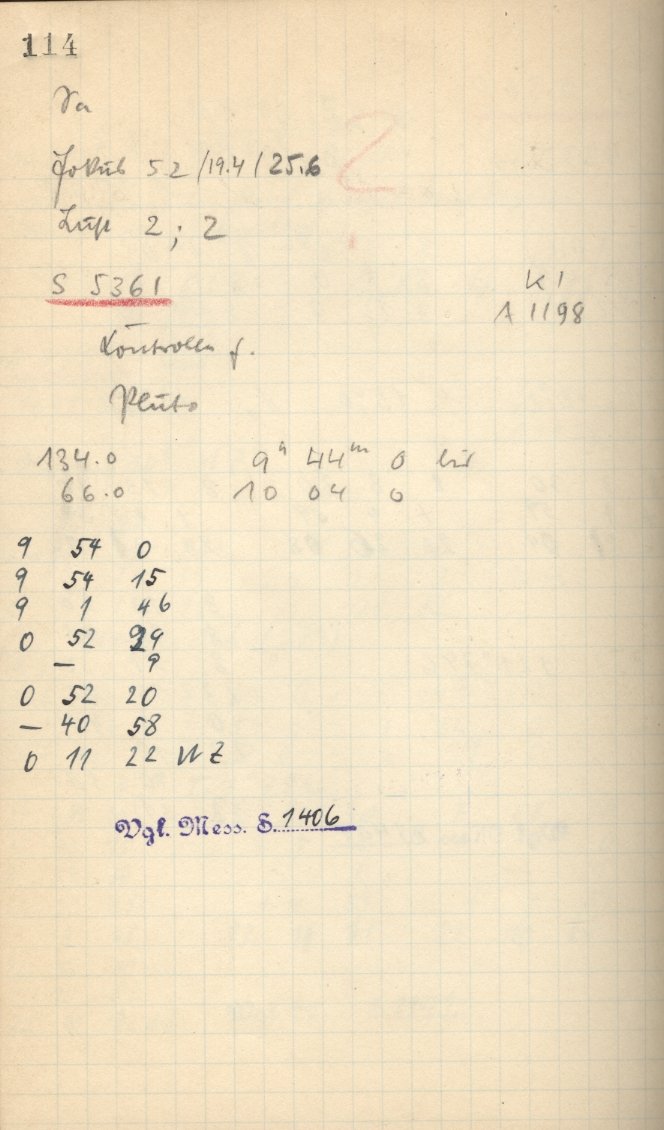 114
Fokus 52/19.4/25.6
Luft 2 ; 2
S 5361
K I
A 1198
Kontrolle f.
Pluto
134.0 9h 44m 0 bis
66.0 10 04 0
9 54 0
9 54 15
9 1 46
0 52 29
— 9
0 52 20
— 40 58
0 11 22 WZ
Vgl. Mess. S. 1406